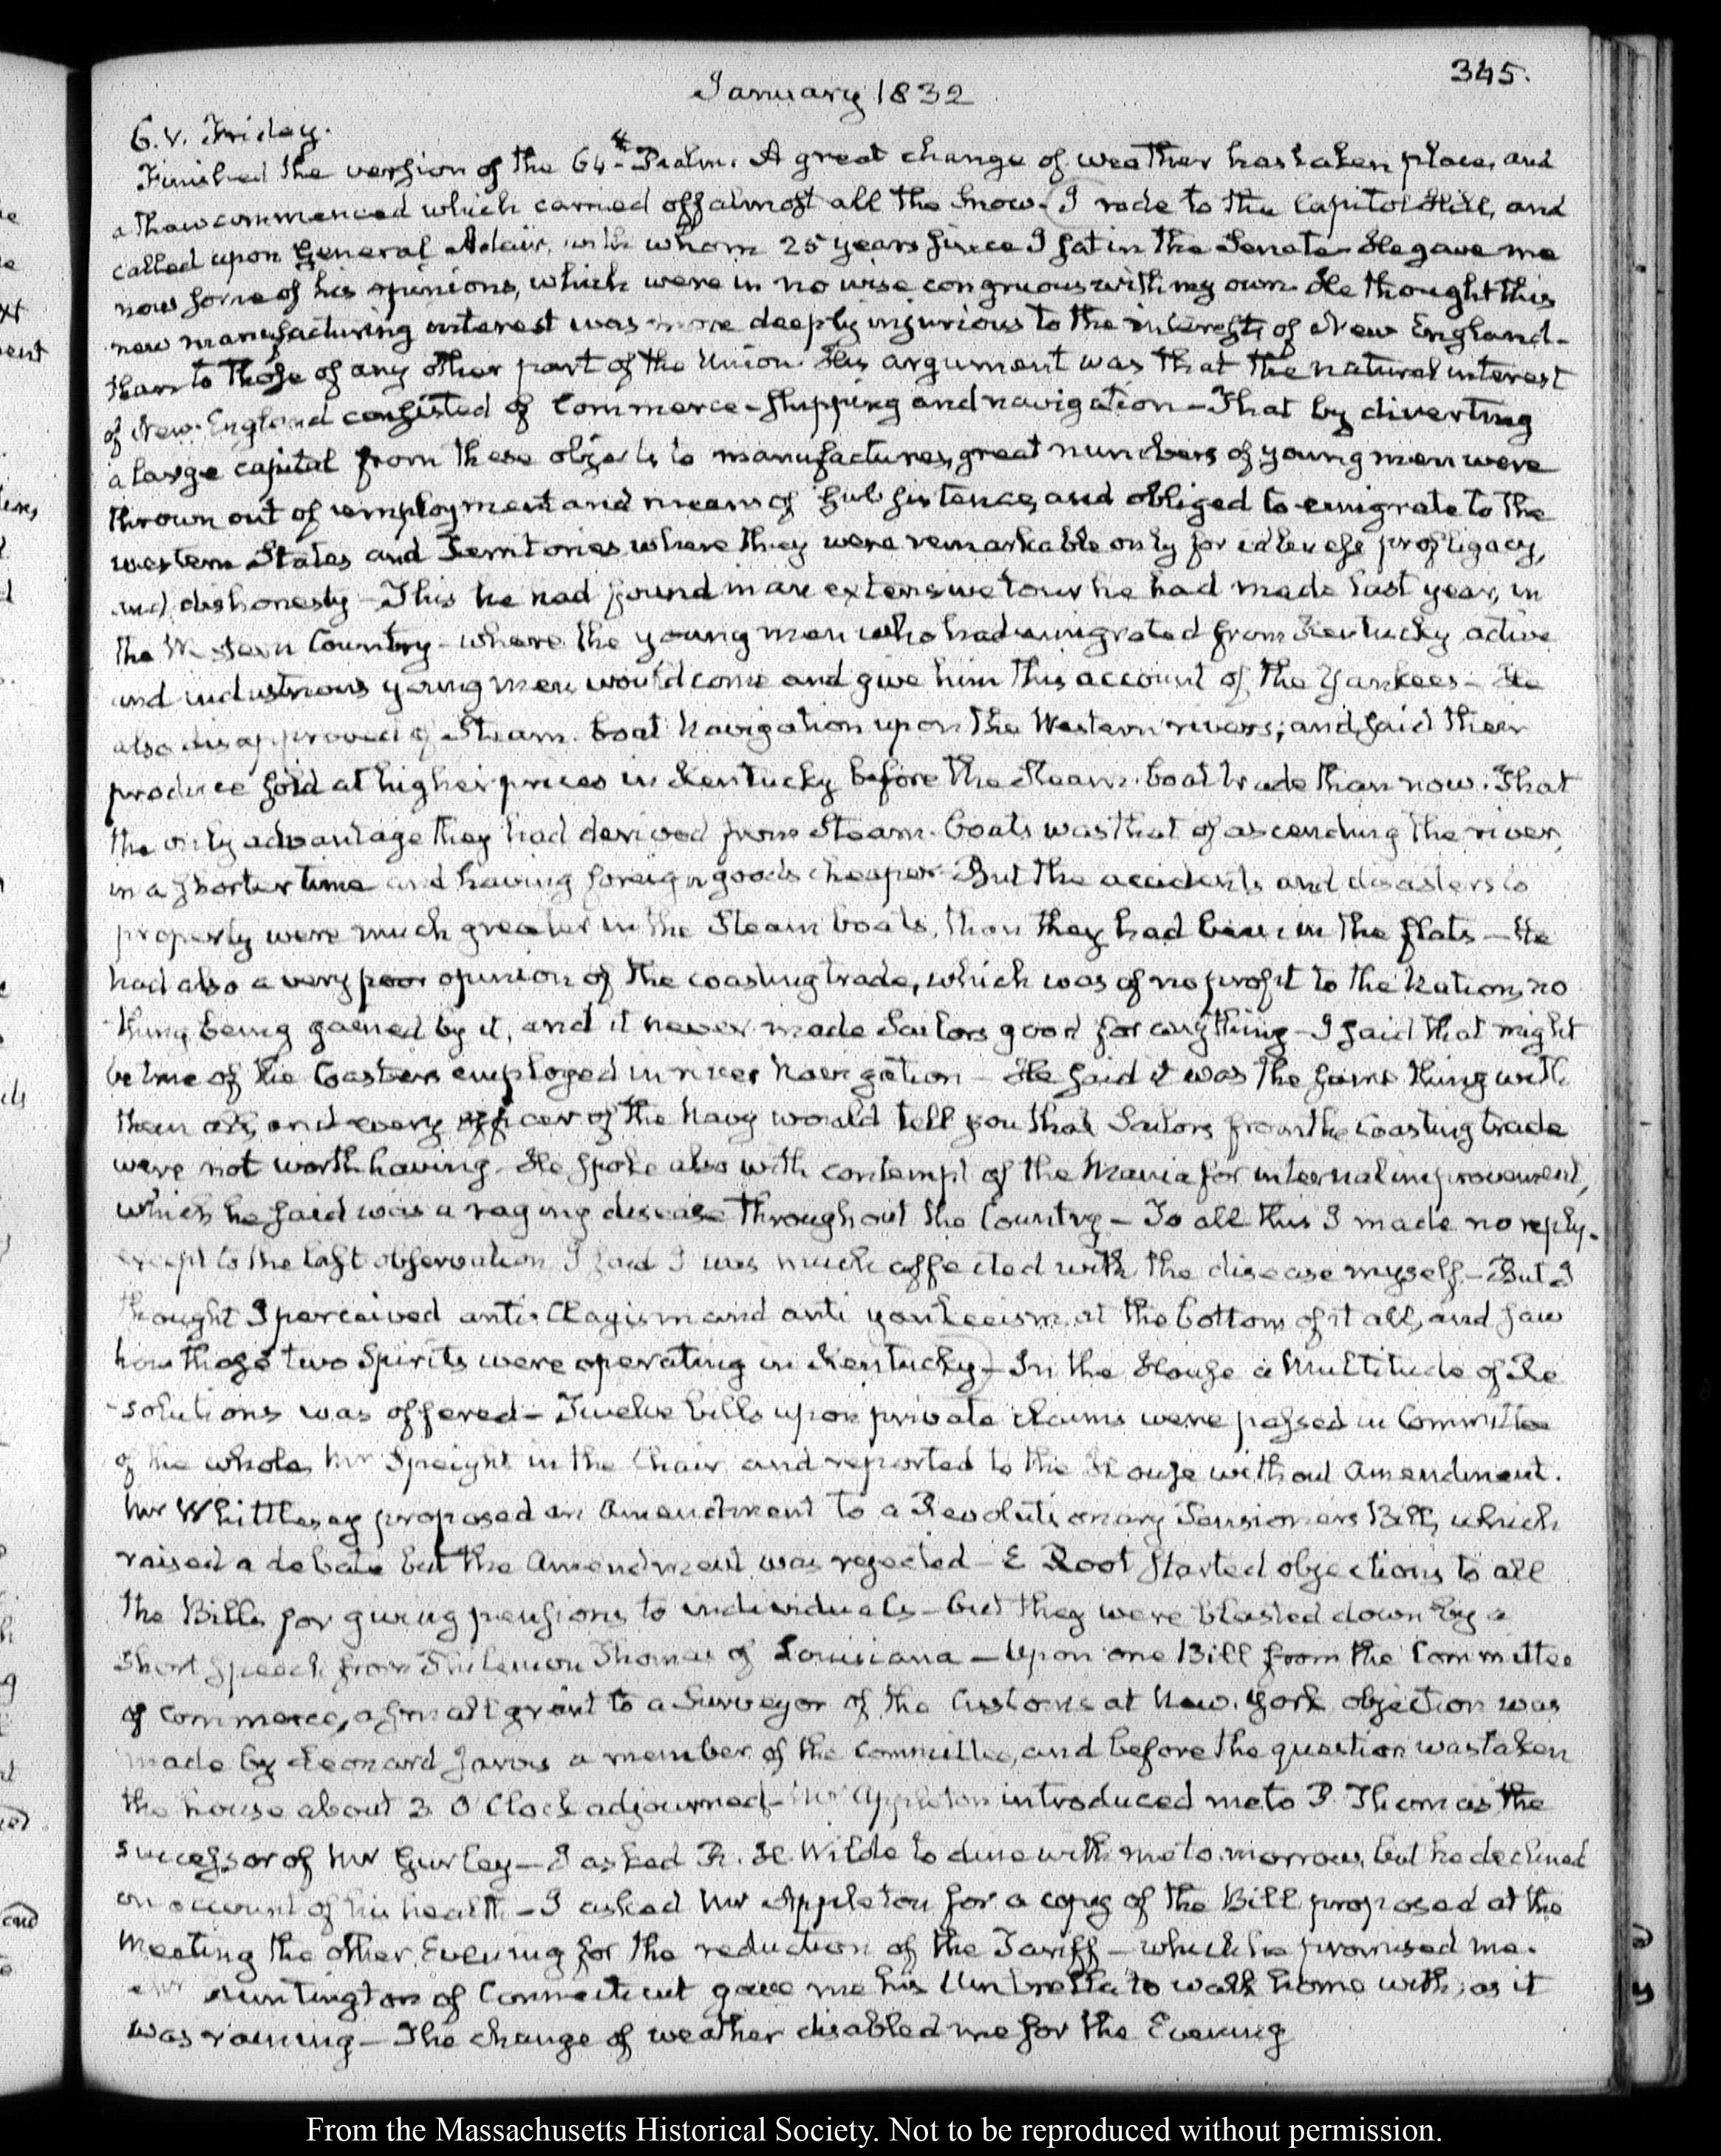 345.
January 1832
6. V. Friday.
Finished the version of the 64th Psalm. A great change of weather has taken place, and
a thaw commenced which carried off almost all the Snow. (I rode to the Capitol Hill, and
called upon General Adair, with whom 25 years since I sat in the Senate. He gave me
now some of his opinions, which were in no wise congruous with my own. He thought this
new manufacturing interest was more deeply injurious to the interests of New England-
than to those of any other part of the Union. His argument was that the natural interest
of New-England consisted of Commerce - shipping and navigation - That by diverting
a large capital from these objects to manufactures, great numbers of young men were
thrown out of employment and means of subsistence, and obliged to emigrate to the
western States and Territories where they were remarkable only for idleness profligacy,
and dishonesty - This he had found in an extensive tour he had made last year, in
the Western Country - where the young men who had emigrated from Kentucky, active
and industrious young men, would come and give him this account of the Yankees - He
also disapproved of Steam-boat Navigation upon the Western rivers; and said their
produce sold at higher prices in Kentucky before the Steam-boat trade than now. That
the only advantage they had derived from Steam-boats was that of ascending the river,
in a shorter time and having foreign goods cheaper. But the accidents and disasters to
property were much greater in the Steam boats, than they had been in the flats - He
had also a very poor opinion of the coasting trade, which was of no profit to the Nation, no
thing being gained by it, and it never made Sailors good for any thing - I said that might
be true of the Coasters employed in river Navigation - He said it was the same thing with
them all, and every officer of the Navy would tell you that Sailors from the Coasting trade
were not worth having. He spoke also with contempt of the Mania for internal improvement,
which he said was a raging disease throughout the Country - To all this I made no reply-
except to the last observation I said I was much affected with the disease myself. - But I
thought I perceived anti-Clayism and anti yankeeism at the bottom of it all, and saw
how those two Spirits were operating in Kentucky) - In the House a Multitude of Re
-solutions was offered - Twelve bills upon private claims were passed in Committee
of the whole, Mr Speight in the Chair and reported to the House without Amendment.
Mr Whittlesey proposed an Amendment to a Revolutionary Pensioners Bill, which
raised a debate but the Amendment was rejected - E Root started objections to all
the Bills for giving pensions to individuals - but they were blasted down by a
short speech from Philemon Thomas of Louisiana - Upon one Bill from the Committee
of Commerce, a small grant to a Surveyor of the Customs at New-York objection was
made by Leonard Jarvis a member of the Committee, and before the question was taken
the house about 3 O'Clock adjourned - Mr Appleton introduced me to P. Thomas the
successor of Mr Gurley - I asked R. H. Wilde to dine with me to-morrow, but he declined
on account of his health - I asked Mr Appleton for a copy of the Bill proposed at the
Meeting the other Evening for the reduction of the Tariff - which he promised me.
Mr Huntington of Connecticut gave me his Umbrella to walk home with; as it
was raining - The change of weather disabled me for the Evening
From the Massachusetts Historical Society. Not to be reproduced without permission.